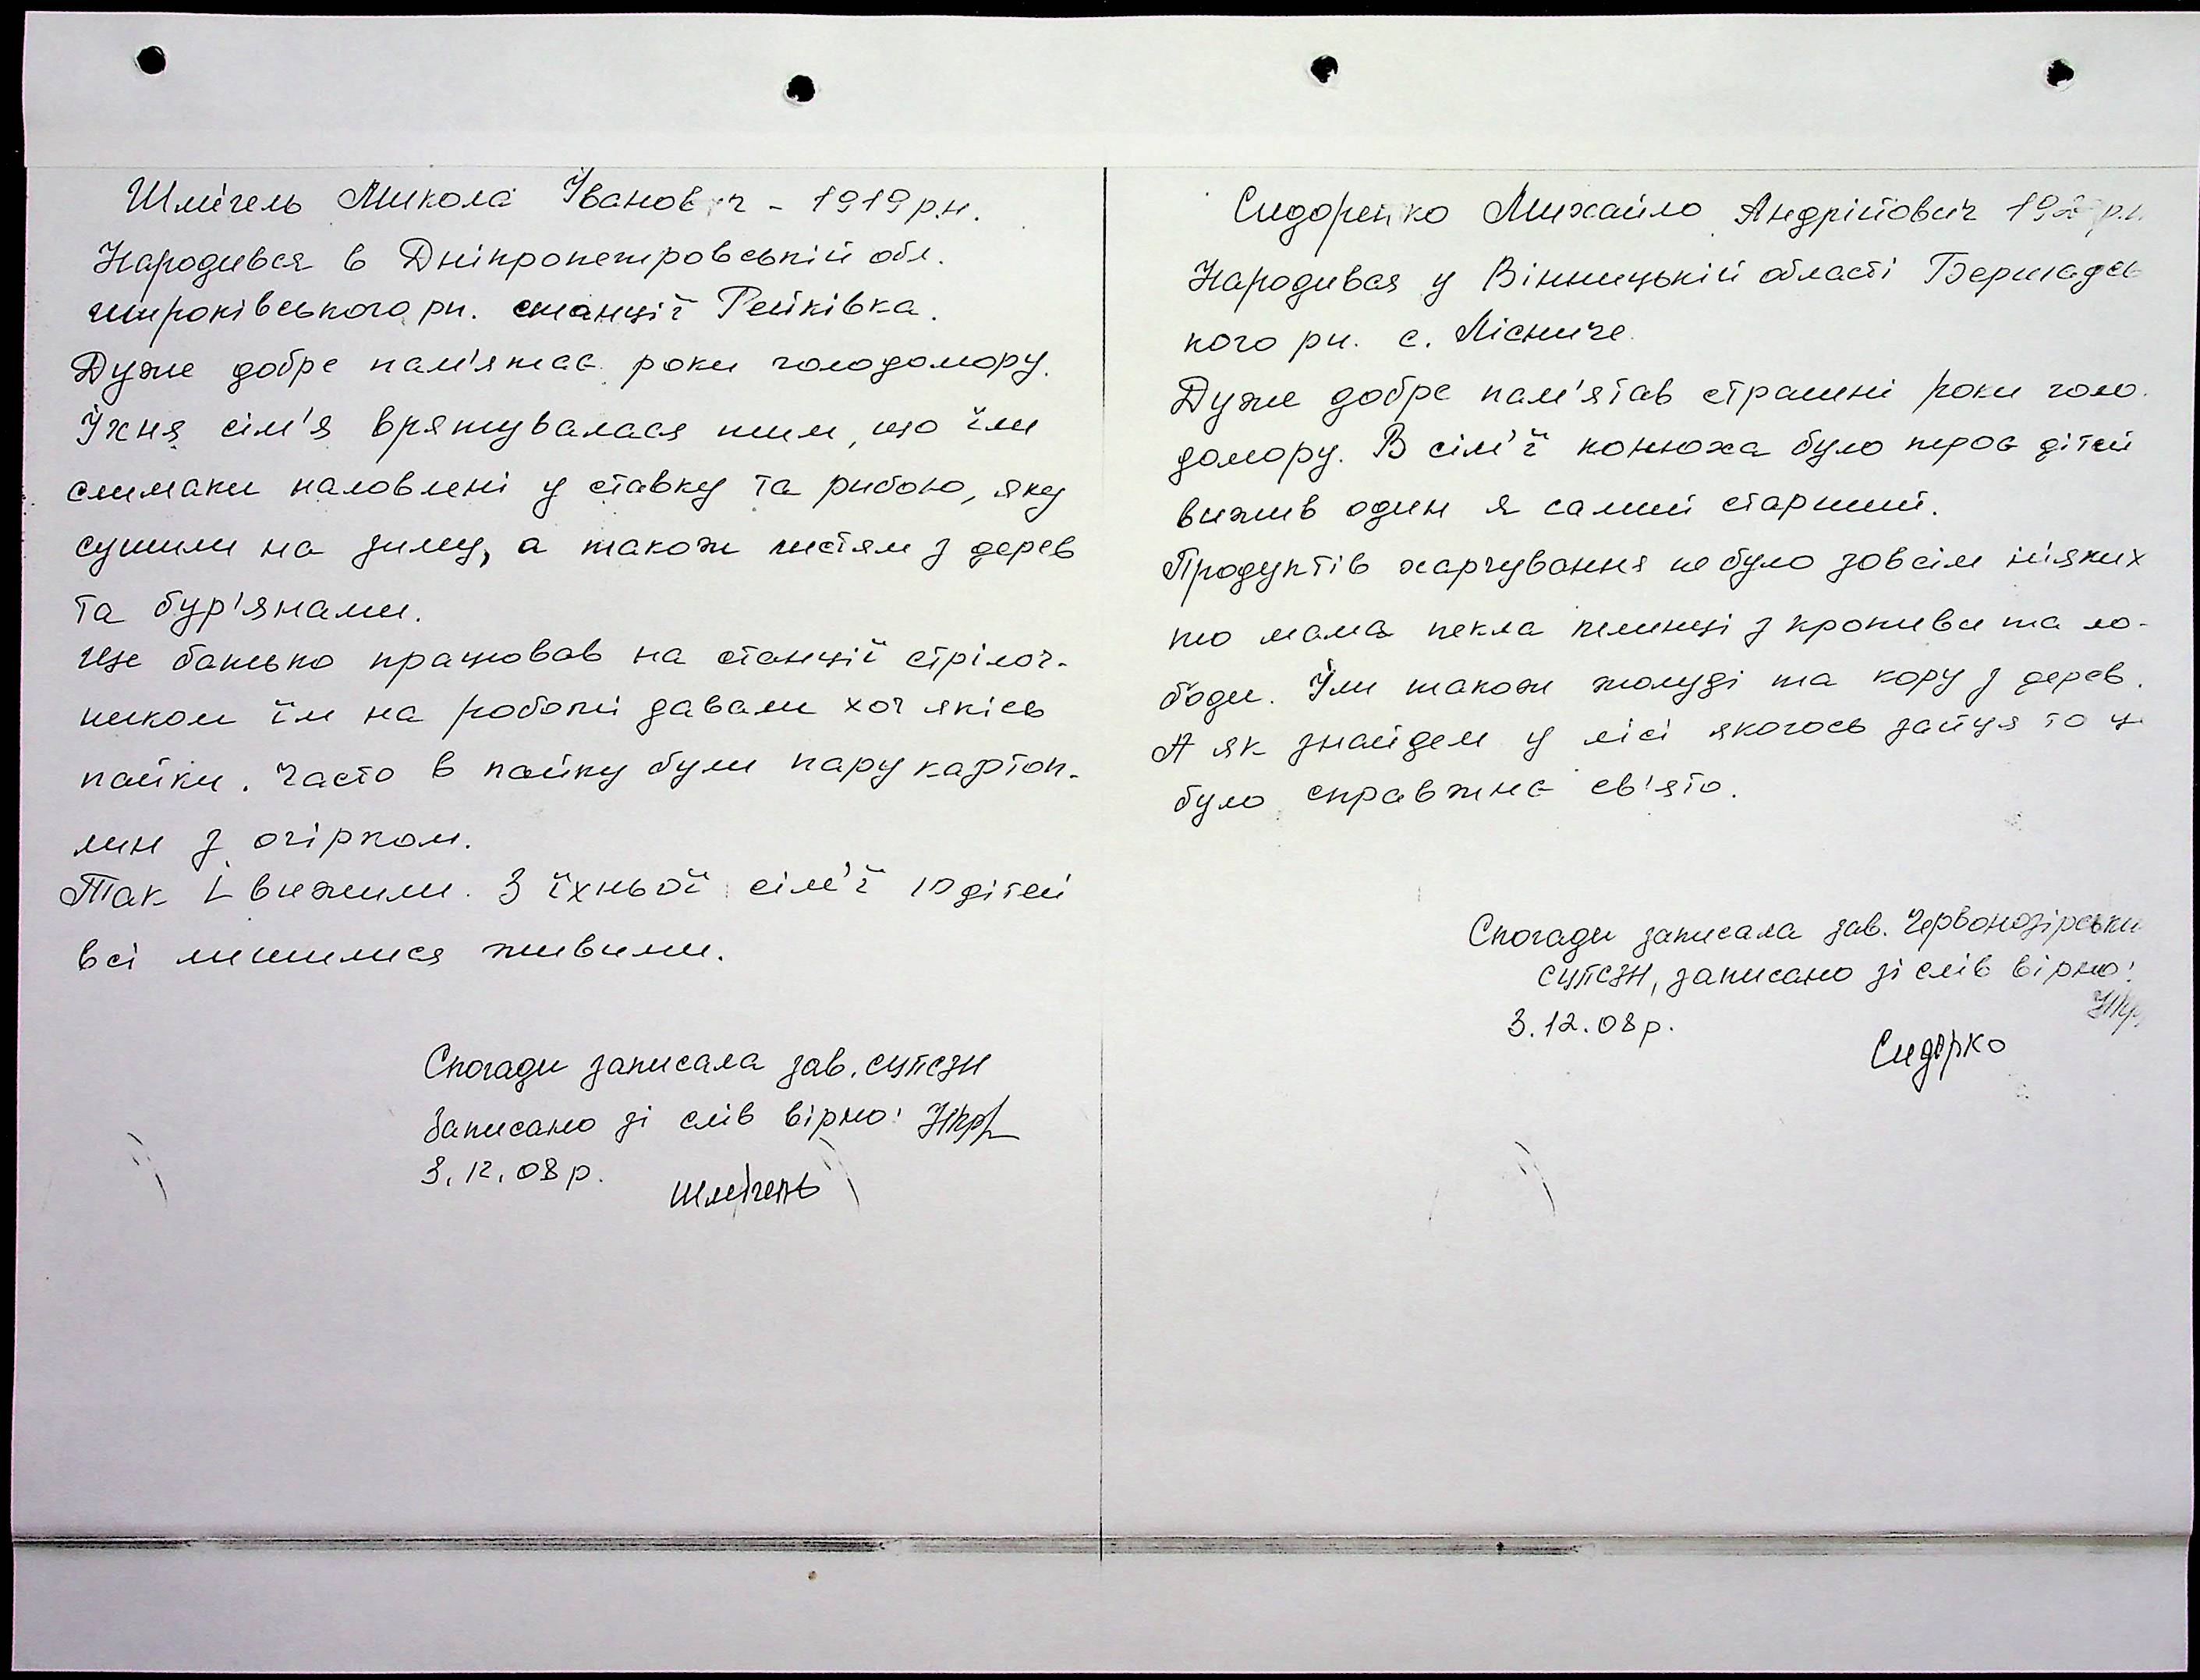 Шмігель Микола Іванович - 1919 р.н.
Народився в Дніпропетровській обл.
широківського рн. станції Рейківка.
Дуже добре пам'ятає роки голодомору.
Їхня сім'я врятувалася тим, що їли
слимаки наловлені у ставку та рибою, яку
сушили на зиму, а також листям з дерев
та бур'янами.
Ще батько працював на станції стрілоч-
ником їм на роботі давали хоч якісь
пайки. Часто в пайку були пару картоп-
лин з огірком.
Так і вижили. З їхньої сім'ї 10 дітей
всі лишилися живими.
Спогади записала зав. СЦПСЗН
Записано зі слів вірно:
3.12.08 р.
Шмігель
Сидоренко Михайло Андрійович
Народився у Вінницькій області Бершадсь
кого рн. с. Лісниче.
Дуже добре пам'ятав страшні роки голо
домору. В сім'ї конюха було троє дітей
вижив один я самий старший.
Продуктів харчування не було зовсім ніяких
то мама пекла млинці з кропиви та ло-
боди. Їли також жолуді та кору з дерев.
А як знайдем у лісі якогось зайця то ц
було справжнє св'ято.
Спогади записала зав. Червонозірськи
СЦПСЗН, записано зі слів вірно:
3.12.08 р.
Сидорко